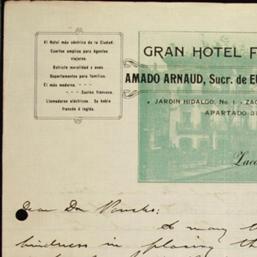 El Hotel más céntrico de la Ciudad.
Cuartos amplios para Agentes
viajeros.
Estricta moralidad y aseo.
Departamentos para familias.
El más moderno.
Cocina francesa.
Llamadores eléctricos. Se habla
francés é inglés.
GRAN HOTEL F
AMADO ARNAUD, Sucr. de EU
JARDIN HIDALGO, No. 1 - ZAC
APARTADO 3
Zaca
Dear Dr.
I may t
kindness in placing th